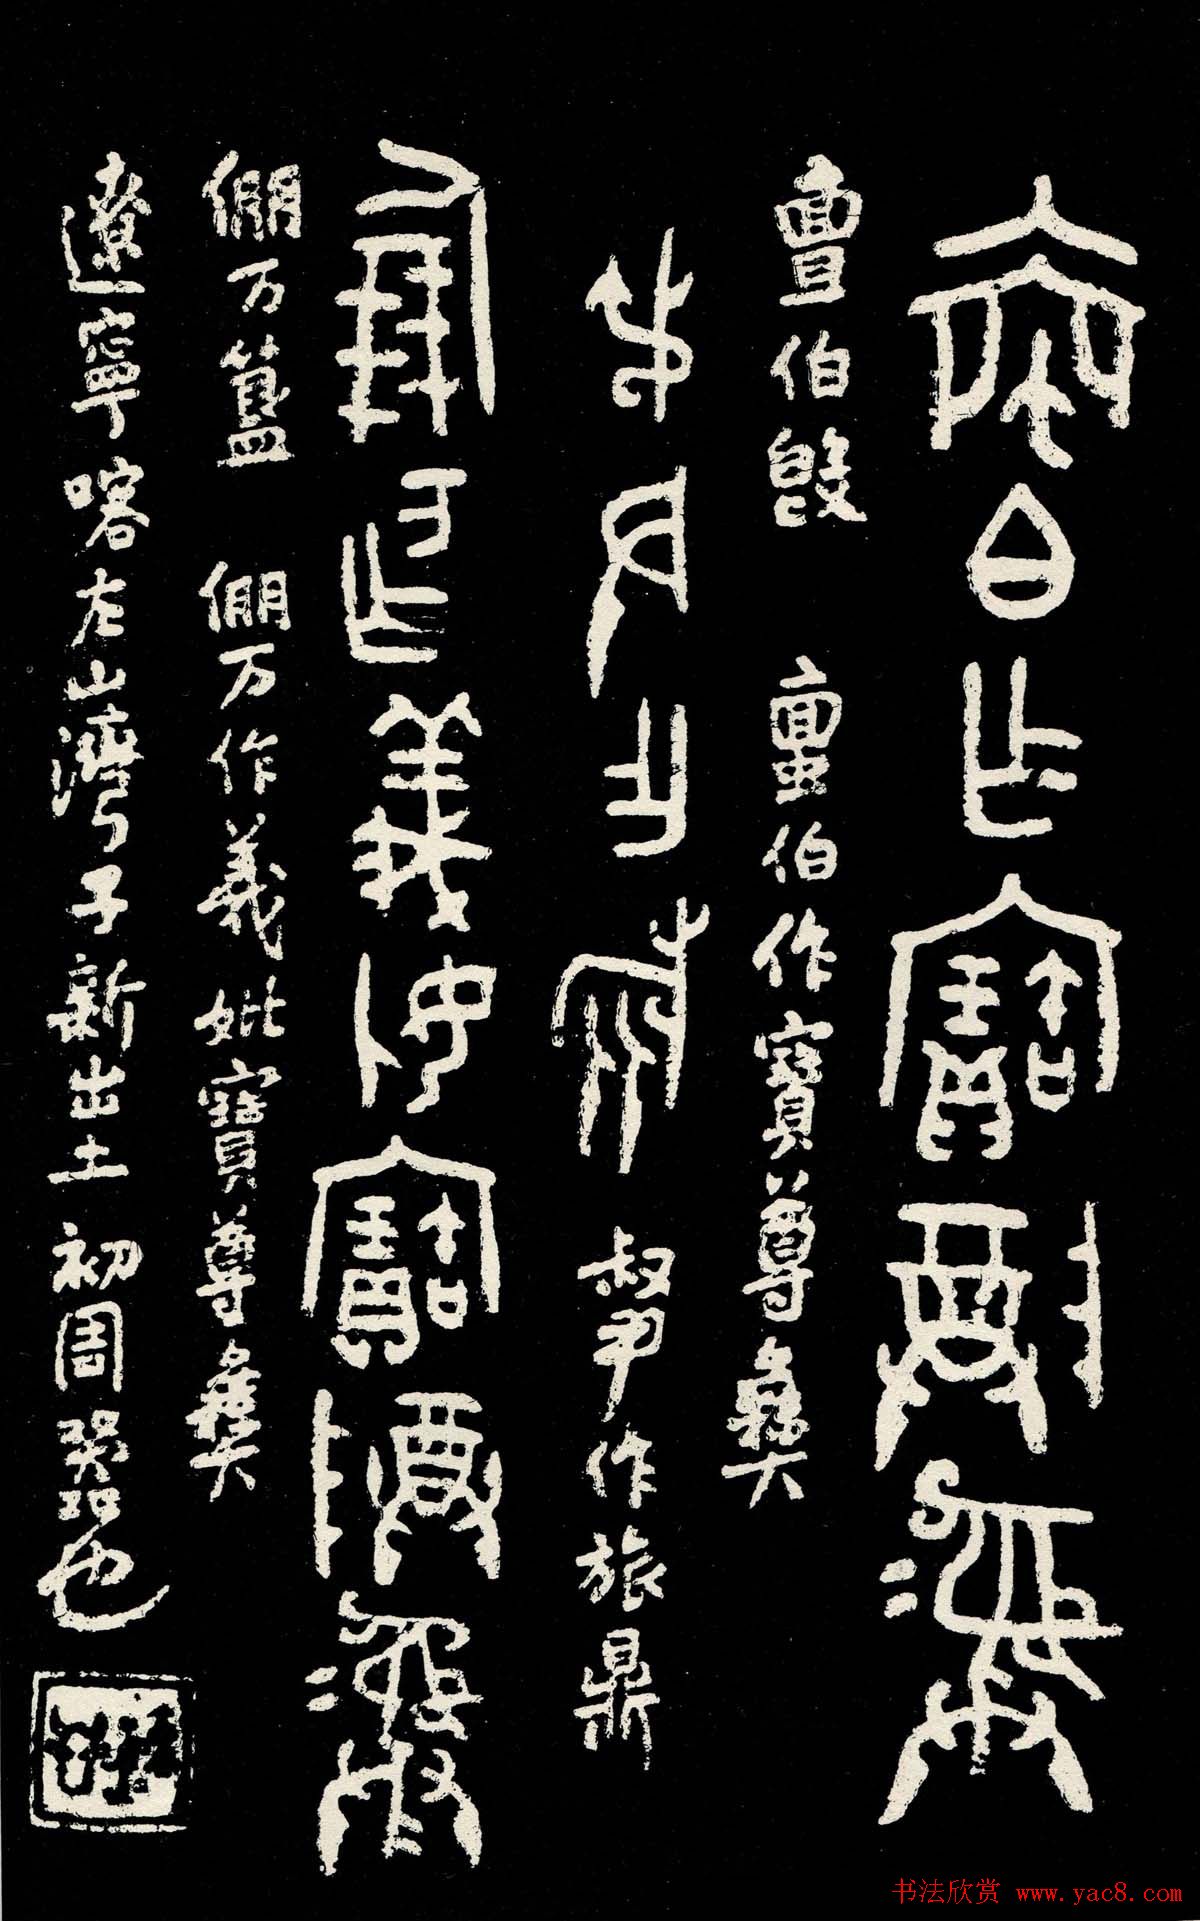 白乍寶尊彝
亶伯𣪘 伯作寶尊彝
弔尹乍旅 叔尹作旅鼎
倗丂乍義妣寶尊彝
倗万簋 倗万作義妣寶尊彝
遼寧喀左山灣子新出土 初周器也
书法欣赏 www.yac8.com